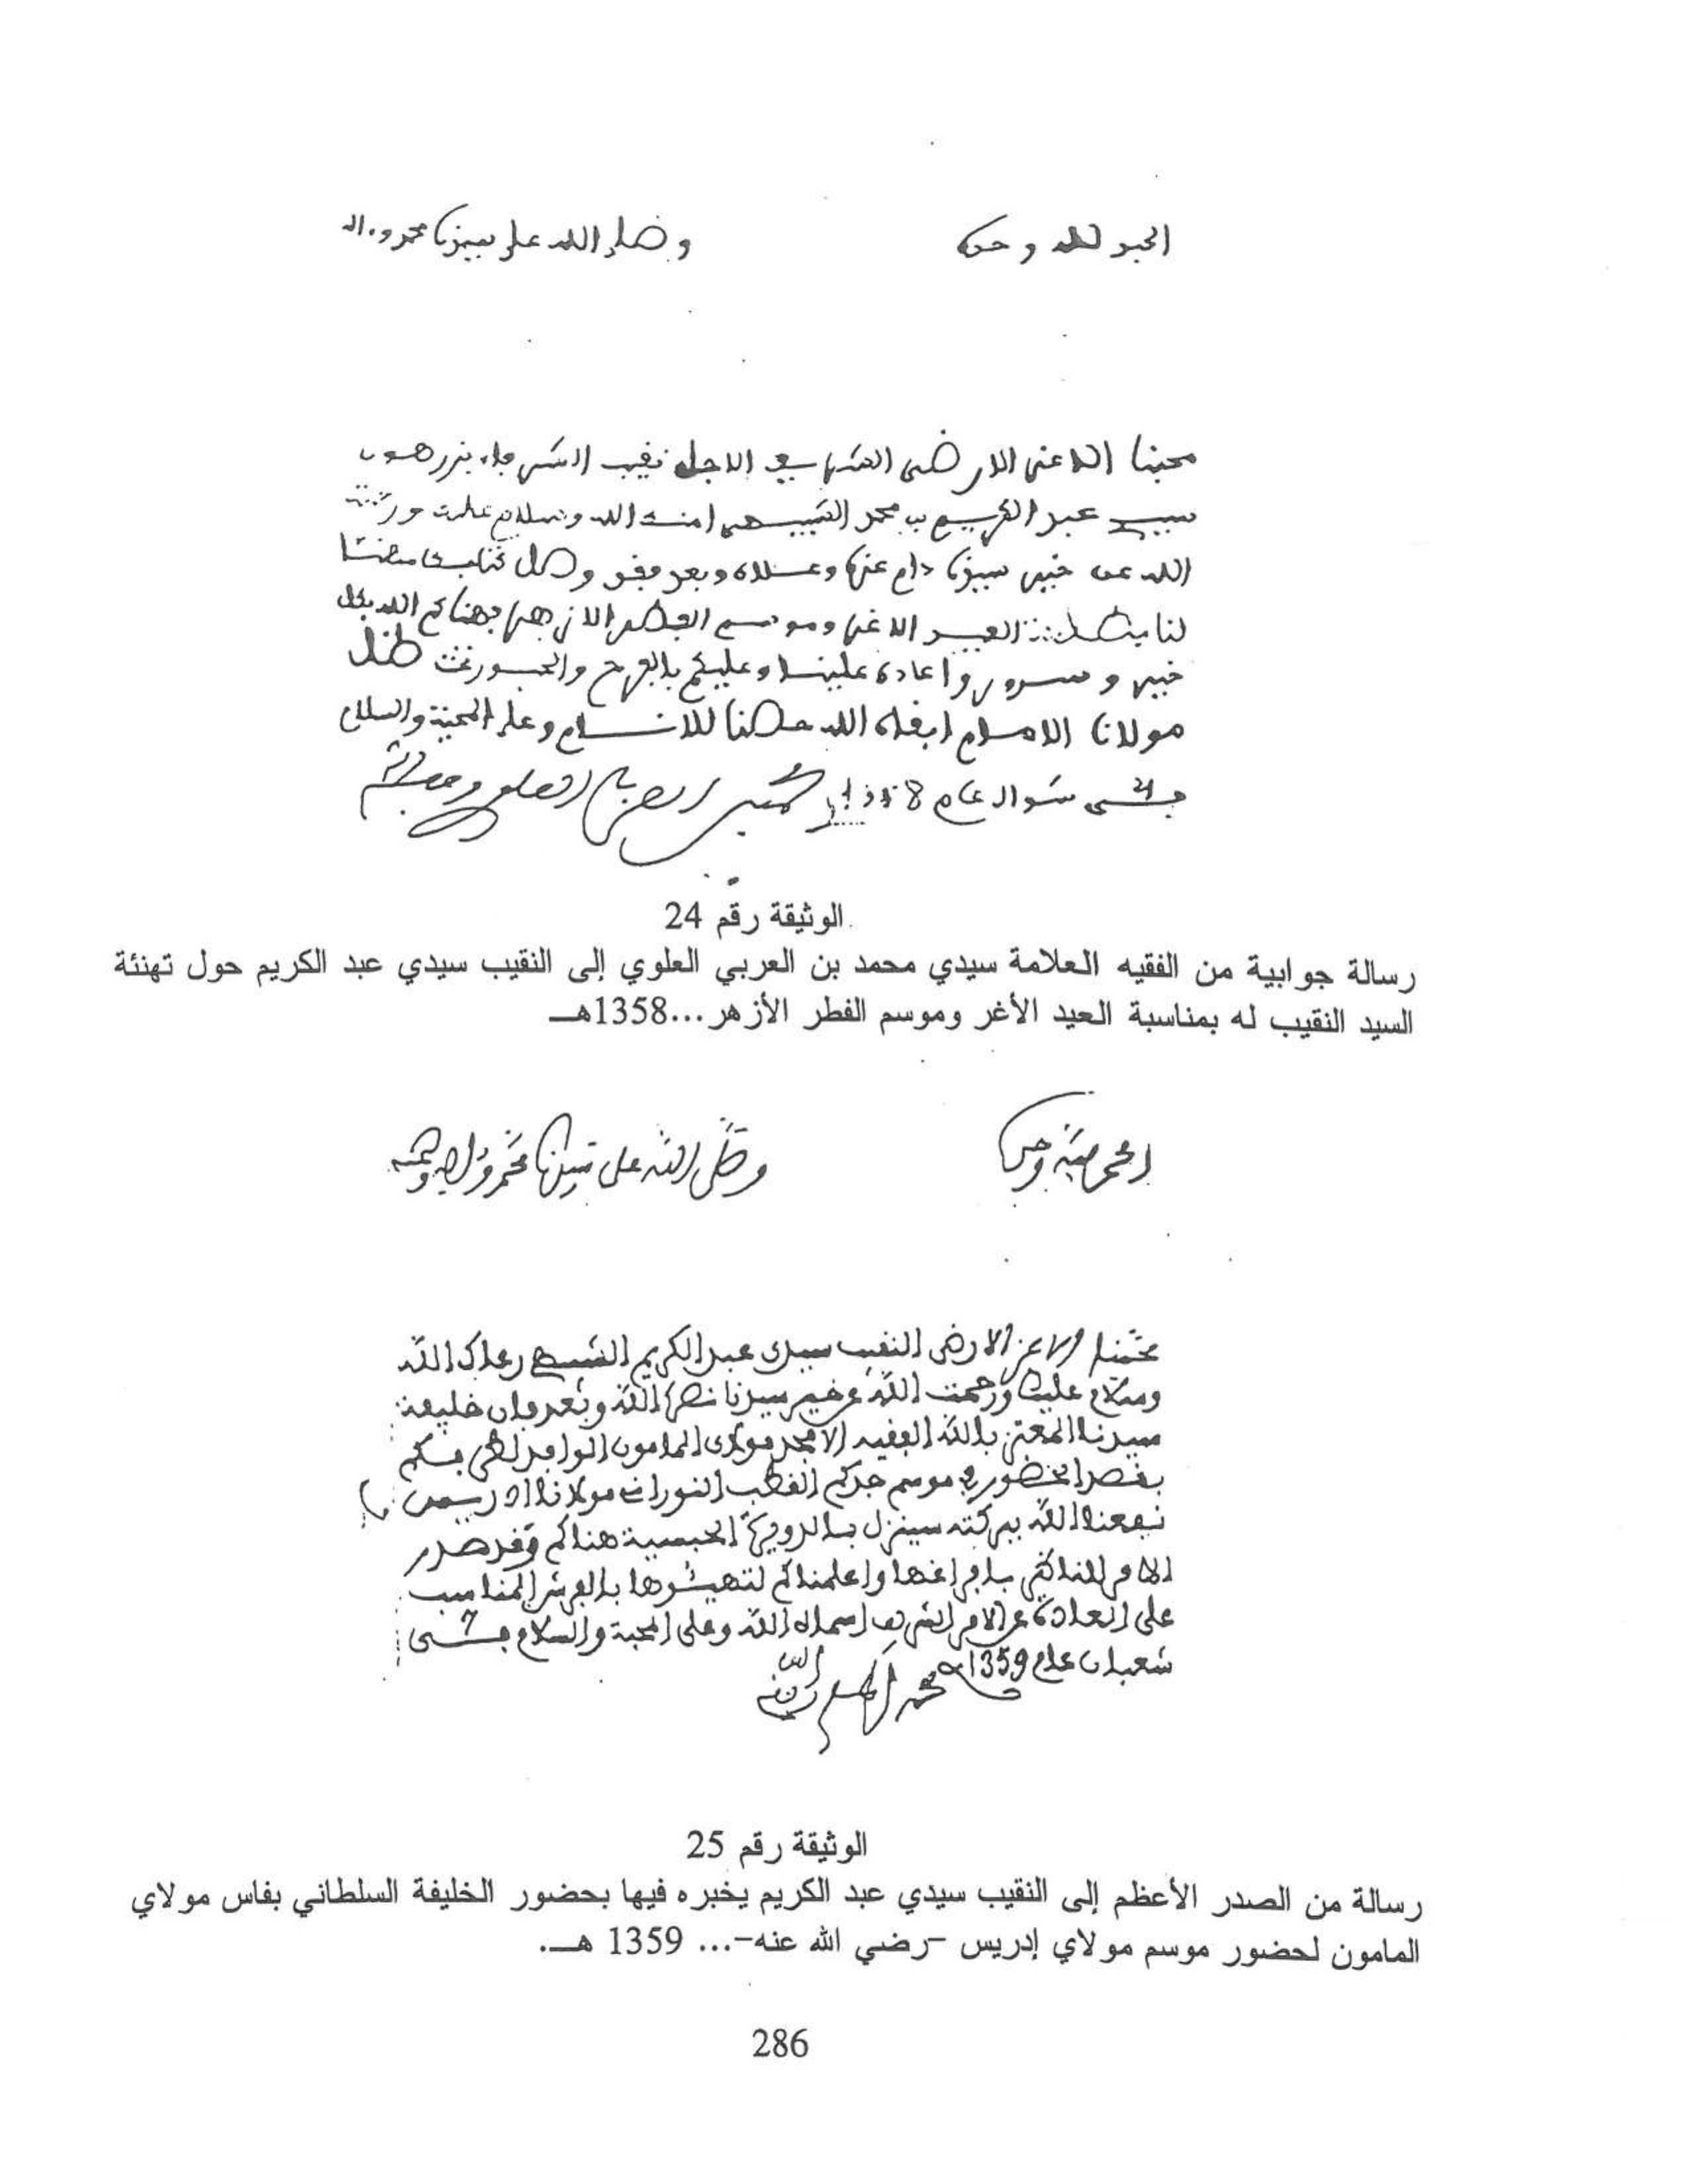 الحمد لله وحده
وصلى الله على سيدنا محمد وآله
محبنا الاعز الارضى الشريف الاجل نقيب الشرفاء بزرهون
سيدي عبد الكريم بن محمد الشبيهي امنك الله وسلام عليك ورحمة
الله عن خير سيدنا دام عزه وعلاه وبعد فقد وصل كتابك مهنئا
لنا بهذا العيد الاغر وموسم الفطر الازهر فهناكم الله بكل
خير وسرور واعاده علينا وعليكم بالفرح والحبور تحت ظل
مولانا الامام ابقاه الله حصنا للاسلام وعلى المحبة والسلام
في شوال عام 1358 محمد بن العربي العلوي
الوثيقة رقم 24
رسالة جوابية من الفقيه العلامة سيدي محمد بن العربي العلوي إلى النقيب سيدي عبد الكريم حول تهنئة
السيد النقيب له بمناسبة العيد الأغر وموسم الفطر الأزهر...1358هـ
الحمد لله وحده
وصلى الله على سيدنا محمد وآله وصحبه
محبنا الاعز الارضى النقيب سيدي عبد الكريم الشبيهي رعاك الله
وسلام عليك ورحمت الله عن خير سيدنا نصره الله وبعد فان خليفة
سيدنا المعتز بالله الفقيه الامجد مولاي المامون الوافد لطرفكم
بقصد الحضور في موسم جدكم القطب النوراني مولانا ادريس
نفعنا الله ببركته سينزل بالدويرة الحبسية هناكم وقد صدر
الامر للناظر بافراغها واعلمناكم لتهيئوها بالفرش المناسب
على العادة عن الامر الشريف اسماه الله وعلى المحبة والسلام في
شعبان عام 1359 محمد المقري
الوثيقة رقم 25
رسالة من الصدر الأعظم إلى النقيب سيدي عبد الكريم يخبره فيها بحضور الخليفة السلطاني بفاس مولاي
المامون لحضور موسم مولاي إدريس -رضي الله عنه-... 1359 هـ.
286